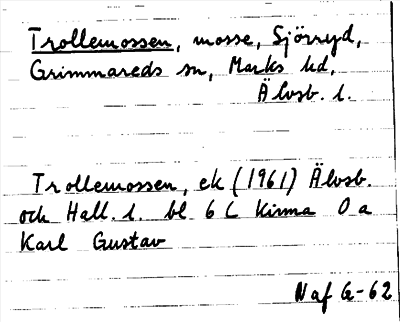 Trollemossen, mosse, Sjöryd,
Grimmareds sn, Marks hd,
Älvsb. l.
Trollemossen, ek (1961) Älvsb.
och Hall. l. bl 6 C Kinna 0 a
Karl Gustav
Naf G-62